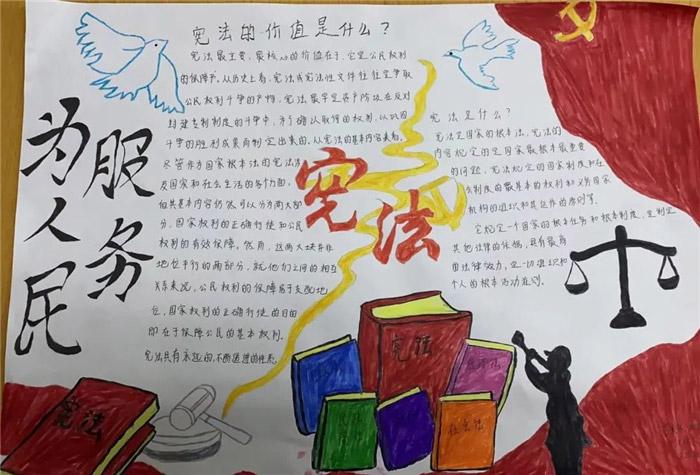 宪法的价值是什么？
宪法最主要、最核心的价值在于，它是公民权利
的保障书。从历史上看，宪法或宪法性文件往往是争取
公民权利斗争的产物，宪法最早是资产阶级在反对
封建专制制度的斗争中，为了确认取得的权利，以巩固
斗争的胜利成果而制定出来的。从宪法的基本内容来看，
尽管作为国家根本法的宪法涉
及国家和社会生活的各个方面，
但其基本内容仍然可以分为两大部
分，国家权利的正确行使和公民
权利的有效保障。然而，这两大块并非
地位平行的两部分，就他们之间的相互
关系来说，公民权利的保障居于支配地
位，国家权利的正确行使的目的
即在于保障公民的基本权利。
宪法具有永远的、不断适进的性态。
为人民
服务
宪法
宪法是什么？
宪法是国家的根本法，宪法的
内容规定的是国家最根本最重要
的问题，宪法规定的国家制度和社
会制度的最基本的权利和义务国家
机构的组织和其运作的原则等。
它规定一个国家的根本任务和根本制度，是制定
其他法律的依据，具有最高
的法律效力，是一切组织和
个人的根本活动准则。
宪法
宪法
社会法